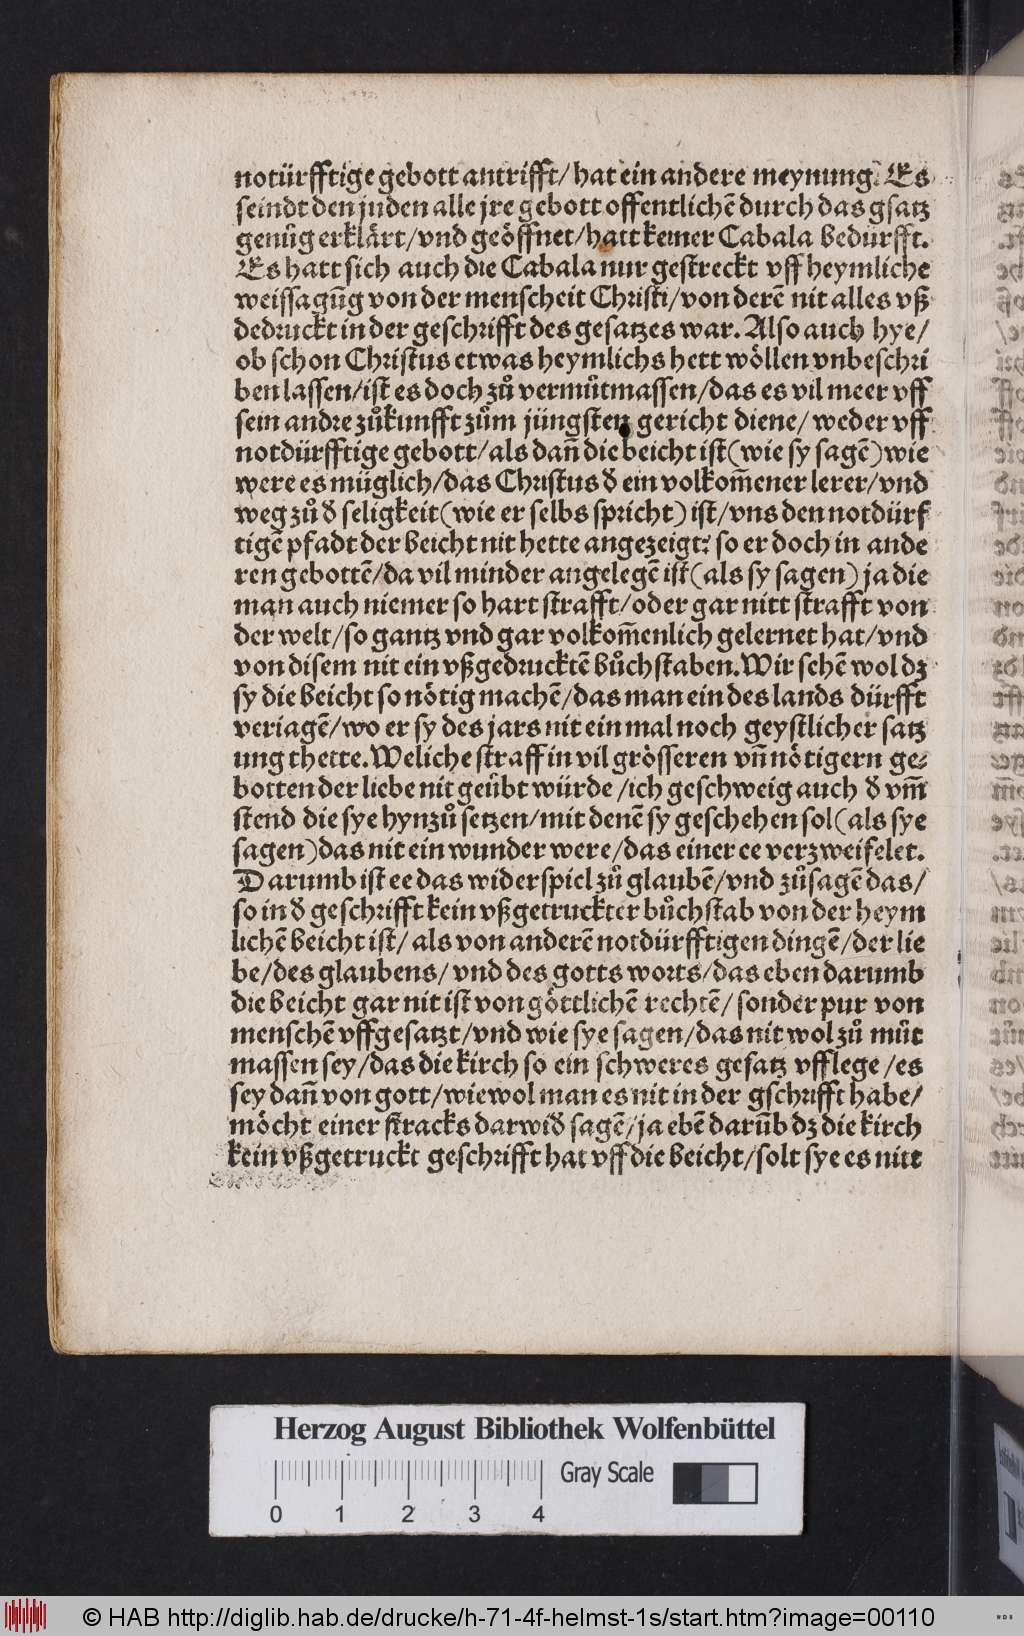 notürfftige gebott antrifft/ hat ein andere meynung. Es
seindt den juden alle jre gebott offentlichē durch das gsatz
genůg erklärt/ vnd geöffnet/ hatt keiner Cabala bedürfft.
Es hatt sich auch die Cabala nur gestreckt vff heymliche
weissagūg von der menscheit Christi/ von derē nit alles vß
dedruckt in der geschrifft des gesatzes war. Also auch hye/
ob schon Christus etwas heymlichs hett wöllen vnbeschri
ben lassen/ ist es doch zů vermůtmassen/ das es vil meer vff
sein andre zůkunfft zům jüngsten gericht diene/ weder vff
notdürfftige gebott/ als dañ die beicht ist (wie sy sagē) wie
were es müglich/ das Christus ð ein volkom̄ener lerer/ vnd
weg zů ð seligkeit (wie er selbs spricht) ist/ vns den notdürf
tigē pfadt der beicht nit hette angezeigt: so er doch in ande
ren gebottē/ da vil minder angelegē ist (als sy sagen) ja die
man auch niemer so hart strafft/ oder gar nitt strafft von
der welt/ so gantz vnd gar volkom̄enlich gelernet hat/ vnd
von disem nit ein vßgedrucktē bůchstaben. Wir sehē wol dz
sy die beicht so nötig machē/ das man ein des lands dürfft
veriagē/ wo er sy des jars nit ein mal noch geystlicher satz
ung thette. Weliche straff in vil grösseren vñ nötigern ge⸗
botten der liebe nit geůbt würde/ ich geschweig auch ð vm̄
stend die sye hynzů setzen/ mit denē sy geschehen sol (als sye
sagen) das nit ein wunder were/ das einer ee verzweifelet.
Darumb ist ee das widerspiel zů glaubē/ vnd zůsagē das/
so in ð geschrifft kein vßgetruckter bůchstab von der heym
lichē beicht ist/ als von anderē notdürfftigen dingē/ der lie
be/ des glaubens/ vnd des gotts worts/ das eben darumb
die beicht gar nit ist von göttlichē rechtē/ sonder pur von
menschē vffgesatzt/ vnd wie sye sagen/ das nit wol zů můt
massen sey/ das die kirch so ein schweres gesatz vfflege/ es
sey dañ von gott/ wiewol man es nit in der gschrifft habe/
möcht einer stracks darwið sagē/ ja ebē darūb dz die kirch
kein vßgetruckt geschrifft hat vff die beicht/ solt sye es nitt
Herzog August Bibliothek Wolfenbüttel
Gray Scale
0 1 2 3 4
© HAB http://diglib.hab.de/drucke/h-71-4f-helmst-1s/start.htm?image=00110